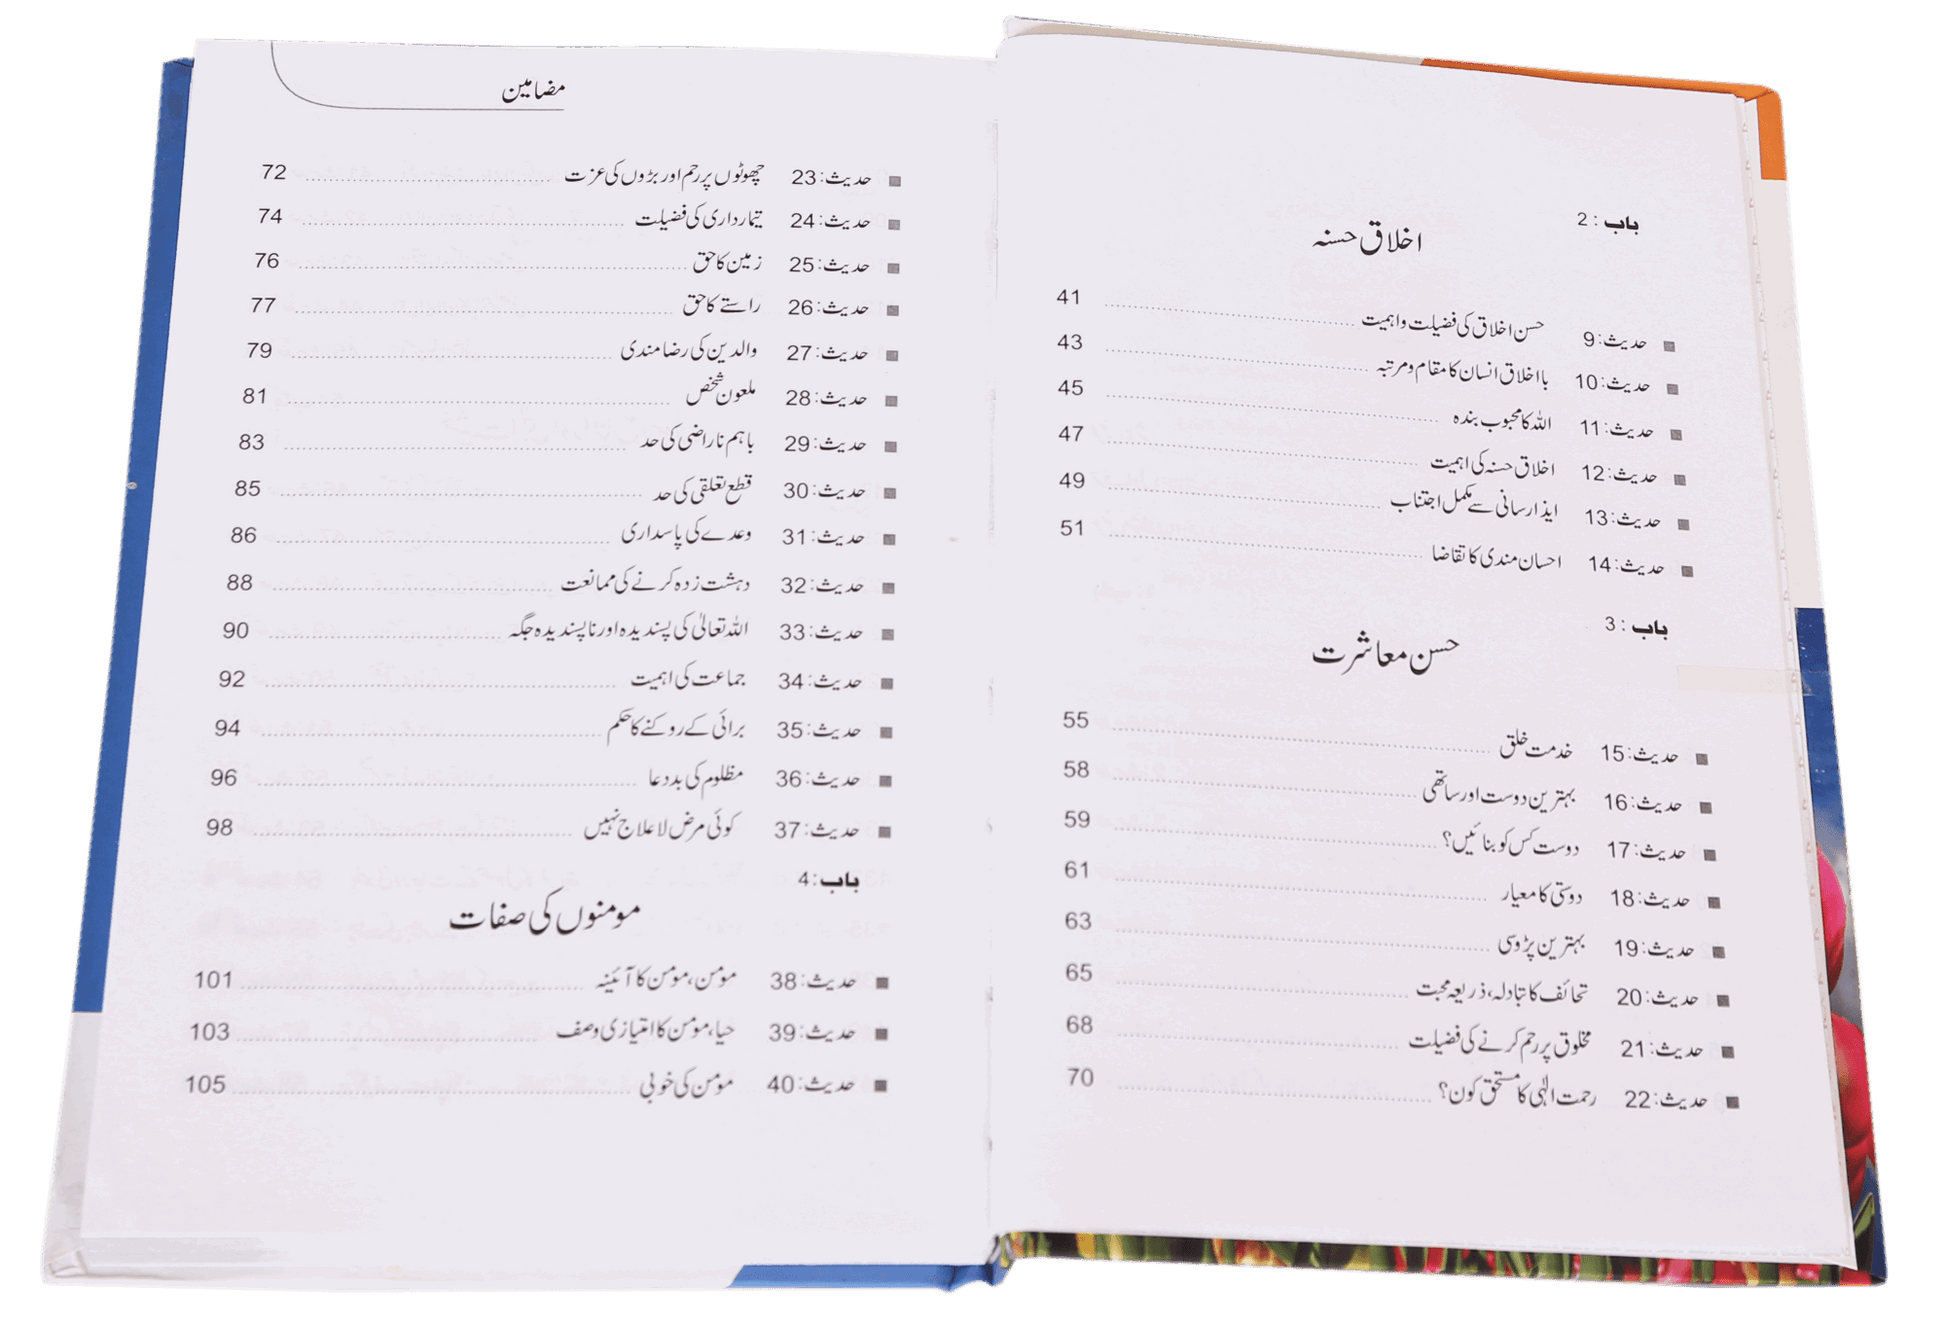 باب : 2
اخلاق حسنہ
حدیث: 9 حسن اخلاق کی فضیلت و اہمیت 41
حدیث: 10 بااخلاق انسان کا مقام و مرتبہ 43
حدیث: 11 اللہ کا محبوب بندہ 45
حدیث: 12 اخلاق حسنہ کی اہمیت 47
حدیث: 13 ایذا رسانی سے مکمل اجتناب 49
حدیث: 14 احسان مندی کا تقاضا 51
باب : 3
حسن معاشرت
حدیث: 15 خدمت خلق 55
حدیث: 16 بہترین دوست اور ساتھی 58
حدیث: 17 دوست کس کو بنائیں؟ 59
حدیث: 18 دوستی کا معیار 61
حدیث: 19 بہترین پڑوسی 63
حدیث: 20 تحائف کا تبادلہ، ذریعہ محبت 65
حدیث: 21 مخلوق پر رحم کرنے کی فضیلت 68
حدیث: 22 رحمت الٰہی کا مستحق کون؟ 70
مضامین
حدیث: 23 چھوٹوں پر رحم اور بڑوں کی عزت 72
حدیث: 24 تیمارداری کی فضیلت 74
حدیث: 25 زمین کا حق 76
حدیث: 26 راستے کا حق 77
حدیث: 27 والدین کی رضامندی 79
حدیث: 28 ملعون شخص 81
حدیث: 29 باہم ناراضی کی حد 83
حدیث: 30 قطع تعلقی کی حد 85
حدیث: 31 وعدے کی پاسداری 86
حدیث: 32 دہشت زدہ کرنے کی ممانعت 88
حدیث: 33 اللہ تعالیٰ کی پسندیدہ اور ناپسندیدہ جگہ 90
حدیث: 34 جماعت کی اہمیت 92
حدیث: 35 برائی کے روکنے کا حکم 94
حدیث: 36 مظلوم کی بددعا 96
حدیث: 37 کوئی مرض لاعلاج نہیں 98
باب : 4
مومنوں کی صفات
حدیث: 38 مومن، مومن کا آئینہ 101
حدیث: 39 حیا، مومن کا امتیازی وصف 103
حدیث: 40 مومن کی خوبی 105